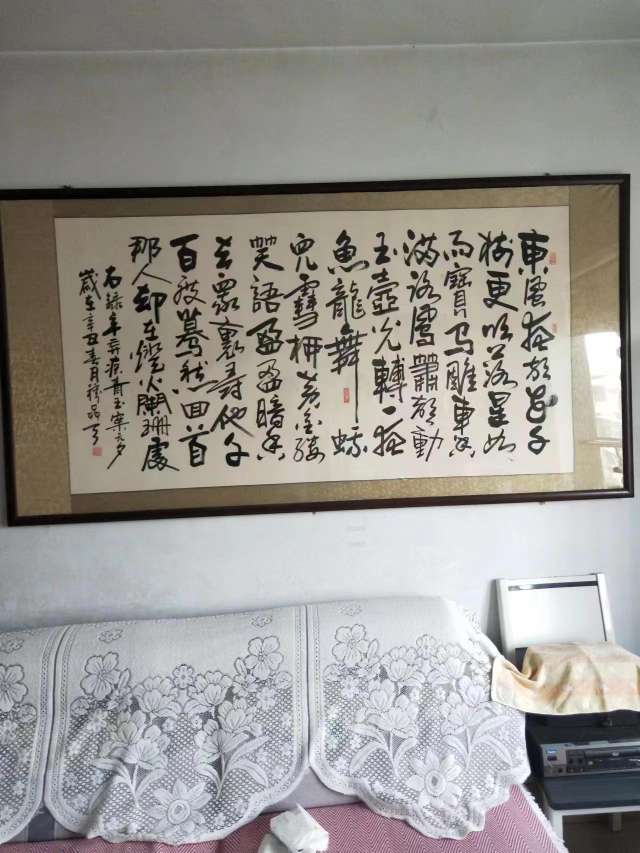 東風夜放花千
樹更吹落星如
雨寶马雕車香
滿路鳳簫聲動
玉壺光轉一夜
魚龍舞 蛾
兒雪柳黄金缕
笑語盈盈暗香
去衆裏尋他千
百度驀然回首
那人却在燈火闌珊處
右録辛弃疾青玉案元夕
歲在辛丑春月